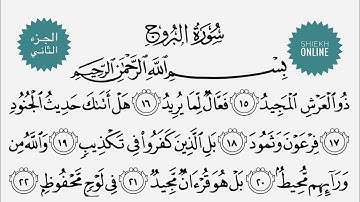 الجزء
الثاني
سُورَةُ البُرُوج
SHIEKH
ONLINE
بِسْمِ اللَّهِ الرَّحْمَٰنِ الرَّحِيمِ
ذُو الْعَرْشِ الْمَجِيدُ ١٥ فَعَّالٌ لِّمَا يُرِيدُ ١٦ هَلْ أَتَىٰكَ حَدِيثُ الْجُنُودِ
١٧ فِرْعَوْنَ وَثَمُودَ ١٨ بَلِ الَّذِينَ كَفَرُوا فِي تَكْذِيبٍ ١٩ وَاللَّهُ مِن
وَرَآئِهِم مُّحِيطٌ ٢٠ بَلْ هُوَ قُرْءَانٌ مَّجِيدٌ ٢١ فِي لَوْحٍ مَّحْفُوظٍ ٢٢